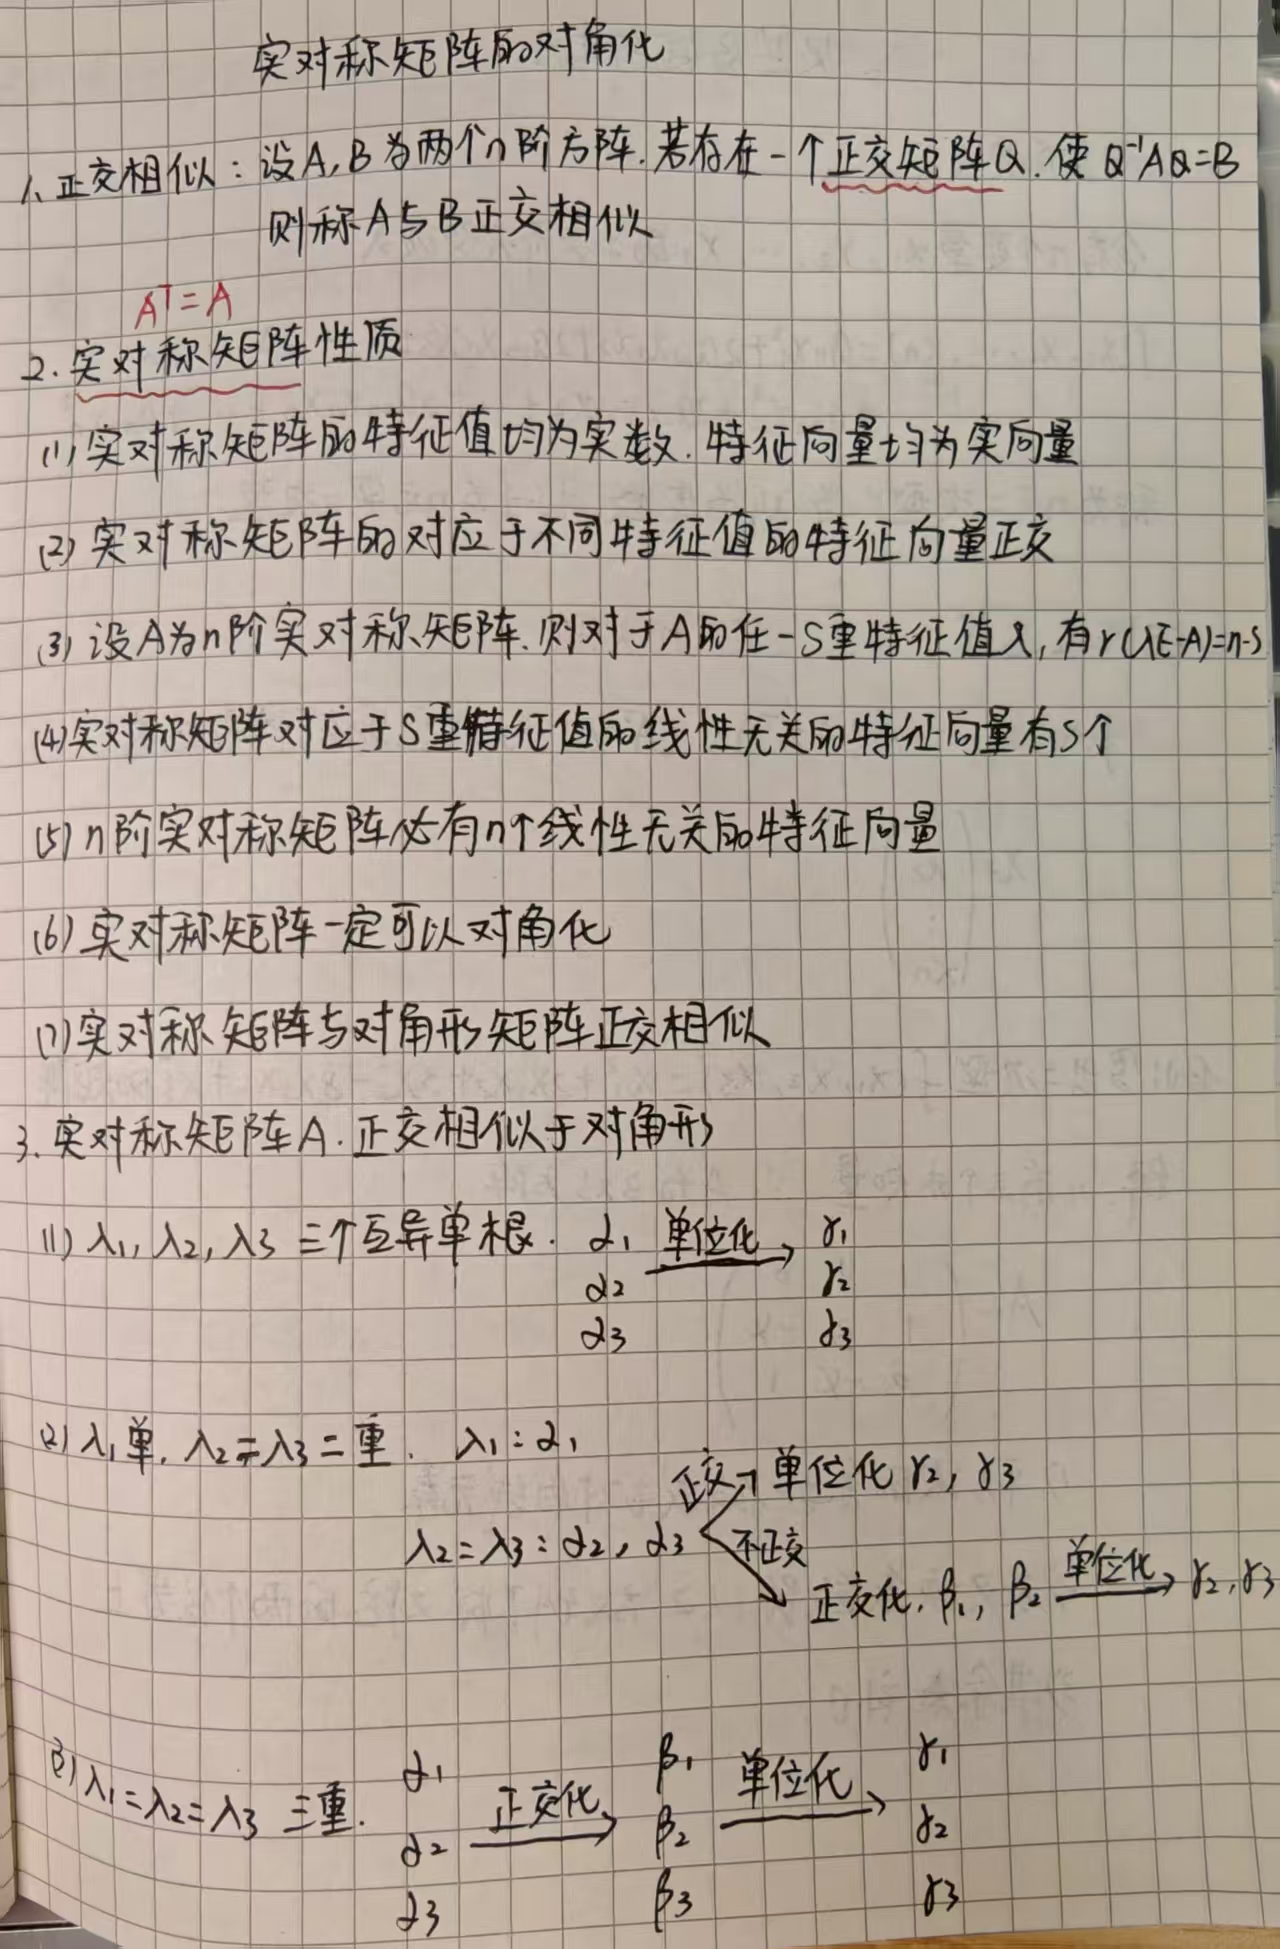 实对称矩阵的对角化
1、正交相似：设A,B为两个n阶方阵.若存在一个正交矩阵Q.使 Q⁻¹AQ=B
则称A与B正交相似
Aᵀ=A
2.实对称矩阵性质
(1)实对称矩阵的特征值均为实数.特征向量均为实向量
(2)实对称矩阵的对应于不同特征值的特征向量正交
(3)设A为n阶实对称矩阵.则对于A的任一S重特征值λ,有r(λE-A)=n-s
(4)实对称矩阵对应于S重特征值的线性无关的特征向量有S个
(5)n阶实对称矩阵必有n个线性无关的特征向量
(6)实对称矩阵一定可以对角化
(7)实对称矩阵与对角形矩阵正交相似
3.实对称矩阵A.正交相似于对角形
(1)λ₁,λ₂,λ₃三个互异单根. α₁ 单位化→ γ₁
α₂ γ₂
α₃ γ₃
(2)λ₁单.λ₂=λ₃二重. λ₁:α₁
正交→单位化γ₂,γ₃
λ₂=λ₃:α₂,α₃ 不正交
正交化.β₁,β₂ 单位化→γ₂,γ₃
(3)λ₁=λ₂=λ₃三重. α₁ 正交化→ β₁ 单位化→ γ₁
α₂ β₂ γ₂
α₃ β₃ γ₃